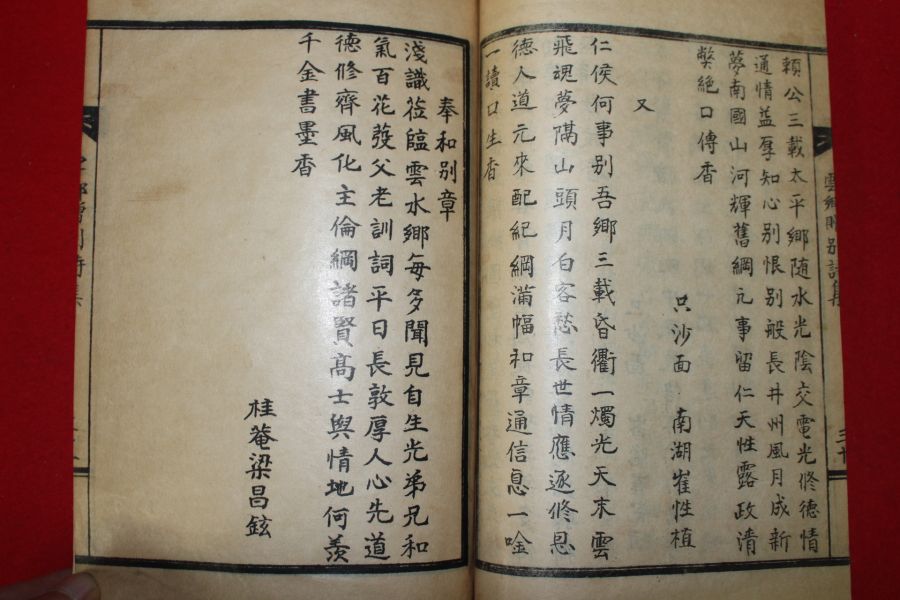 雲鄉贐別詩集
賴公三載太平鄉随水光陰交電光修德情
通情益厚知心别恨别般長井州風月成新
夢南國山河輝舊綱元事留仁天性露政清
獘絶口傳香
只沙面 南湖崔性植
又
仁侯何事别吾鄉三載昏衢一燭光天末雲
飛魂夢隔山頭月白客愁長世情應逐修恩
德人道元來配紀綱滿幅和章通信息一唫
一讀口生香
奉和别章
淺識莅臨雲水鄉每多聞見自生光弟兄和
氣百花發父老訓詞平日長敦厚人心先道
德修齊風化主倫綱諸賢高士輿情地何羨
千金書墨香
桂菴梁昌鉉